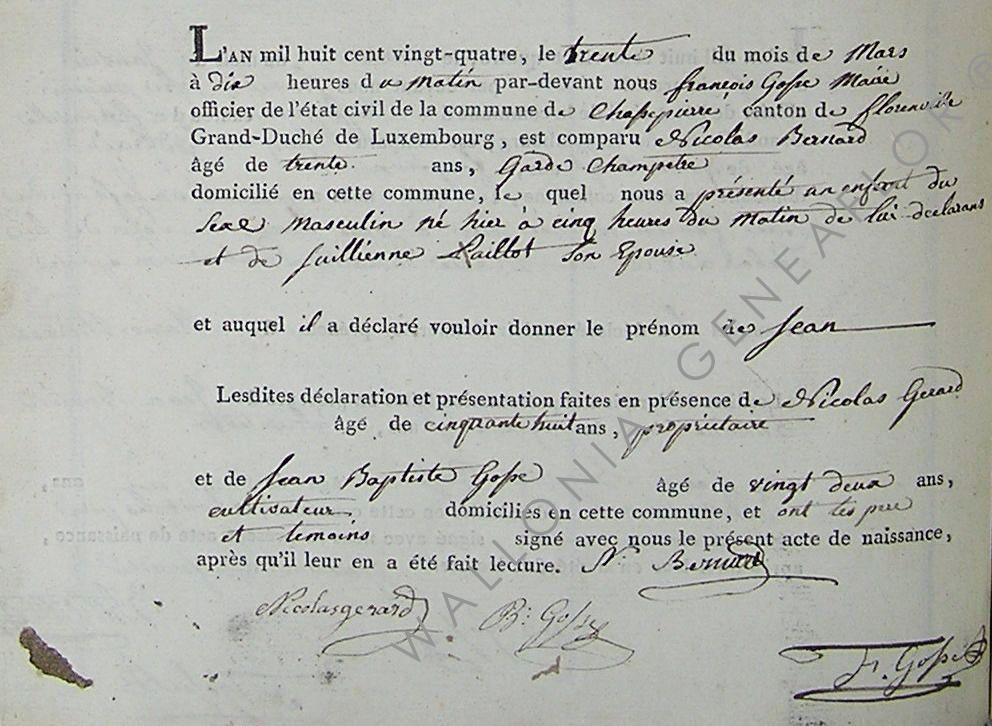 L'AN mil huit cent vingt-quatre, le trente du mois de Mars
à dix heures du matin par-devant nous françois Gosse Maire
officier de l'état civil de la commune de Chassepierre canton de florenville
Grand-Duché de Luxembourg, est comparu Nicolas Bernard
âgé de trente ans, Garde Champetre
domicilié en cette commune, le quel nous a présenté un enfant du
sexe masculin né hier à cinq heures du matin de lui declarans
et de Juillienne Paillot son Epouse
et auquel il a déclaré vouloir donner le prénom de Jean
Lesdites déclaration et présentation faites en présence de Nicolas Gerard
âgé de cinquante huit ans, propriétaire
et de Jean Baptiste Gosse âgé de vingt deux ans,
cultivateur, domiciliés en cette commune, et ont les pere
et temoins signé avec nous le présent acte de naissance,
après qu'il leur en a été fait lecture. N. Bernard
Nicolas gerard B. Gosse
fr. Gosse
WALLONIA GENEALOR